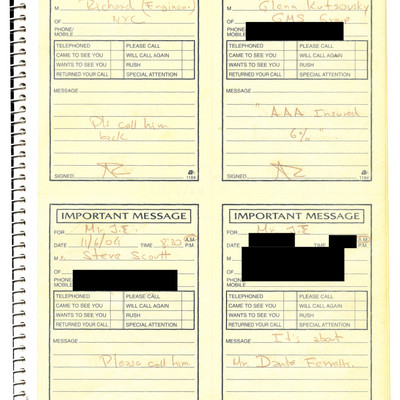 Richard (Engineer)
OF NYC
PHONE/
MOBILE
TELEPHONED PLEASE CALL
CAME TO SEE YOU WILL CALL AGAIN
WANTS TO SEE YOU RUSH
RETURNED YOUR CALL SPECIAL ATTENTION
MESSAGE
Pls call him
back
SIGNED
1184
M Glenn Kutsovsky
OF GMS Group
PHONE/
MOBILE
TELEPHONED PLEASE CALL
CAME TO SEE YOU WILL CALL AGAIN
WANTS TO SEE YOU RUSH
RETURNED YOUR CALL SPECIAL ATTENTION
MESSAGE
"AAA Insured
6%"
SIGNED
1184
IMPORTANT MESSAGE
FOR Mr. J.E.
DATE 11/6/04 TIME 8:30 A.M.
P.M.
M Steve Scott
OF
PHONE/
MOBILE
TELEPHONED PLEASE CALL
CAME TO SEE YOU WILL CALL AGAIN
WANTS TO SEE YOU RUSH
RETURNED YOUR CALL SPECIAL ATTENTION
MESSAGE
Please call him
IMPORTANT MESSAGE
FOR Mr. J.E
DATE TIME A.M.
P.M.
M
OF
PHONE/
MOBILE
TELEPHONED PLEASE CALL
CAME TO SEE YOU WILL CALL AGAIN
WANTS TO SEE YOU RUSH
RETURNED YOUR CALL SPECIAL ATTENTION
MESSAGE It's about
Mr. Dante